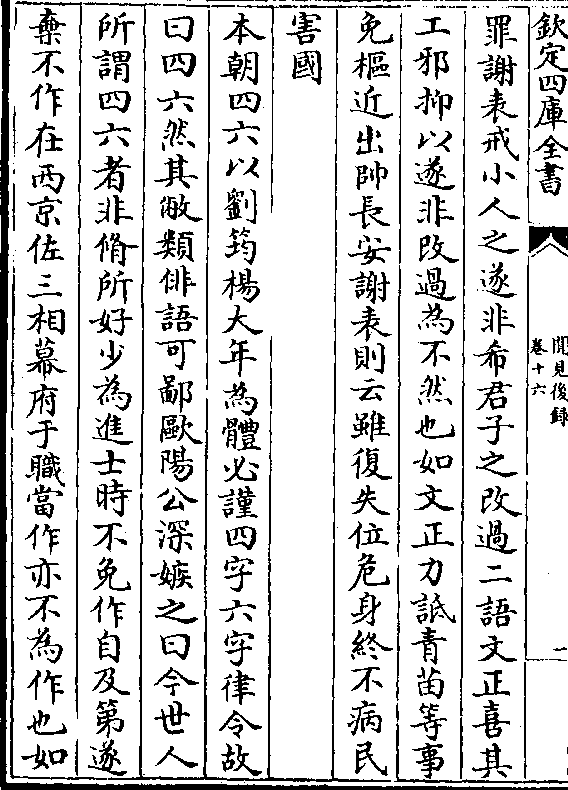 欽定四庫全書
聞見後録
卷十六
一
罪謝表戒小人之遂非希君子之改過二語文正喜其
工邪抑以遂非改過為不然也如文正力詆青苗等事
免樞近出帥長安謝表則云雖復失位危身終不病民
害國
本朝四六以劉筠楊大年為體必謹四字六字律令故
曰四六然其敝類俳語可鄙歐陽公深嫉之曰今世人
所謂四六者非脩所好少為進士時不免作自及第遂
棄不作在西京佐三相幕府于職當作亦不為作也如